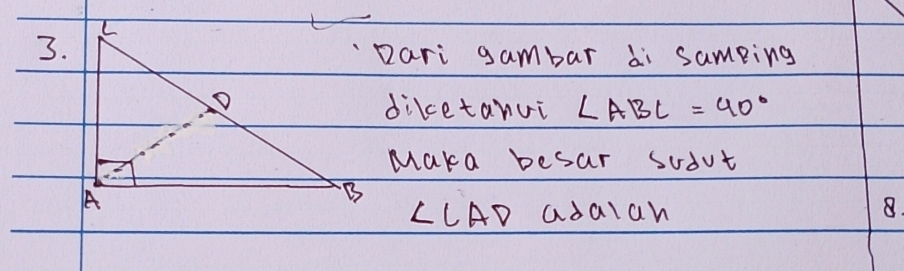 3.
C
D
A
B
Dari gambar di samping
diketahui ∠ABC = 40°
Maka besar sudut
∠CAD adalah
8.